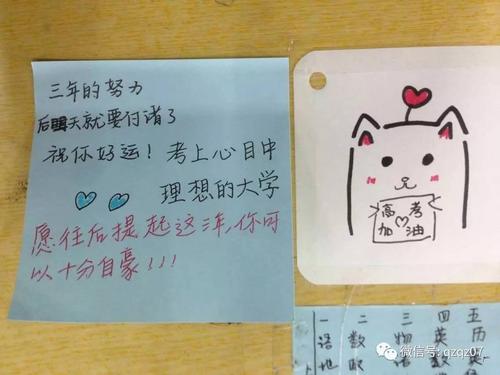 三年的努力
后天就要付诸了
祝你好运！考上心目中
理想的大学
愿往后提起这三年,你可
以十分自豪!!!
高考
加油
一 二 三 四 五
语 数 物 英 历
微信号: qzqz07